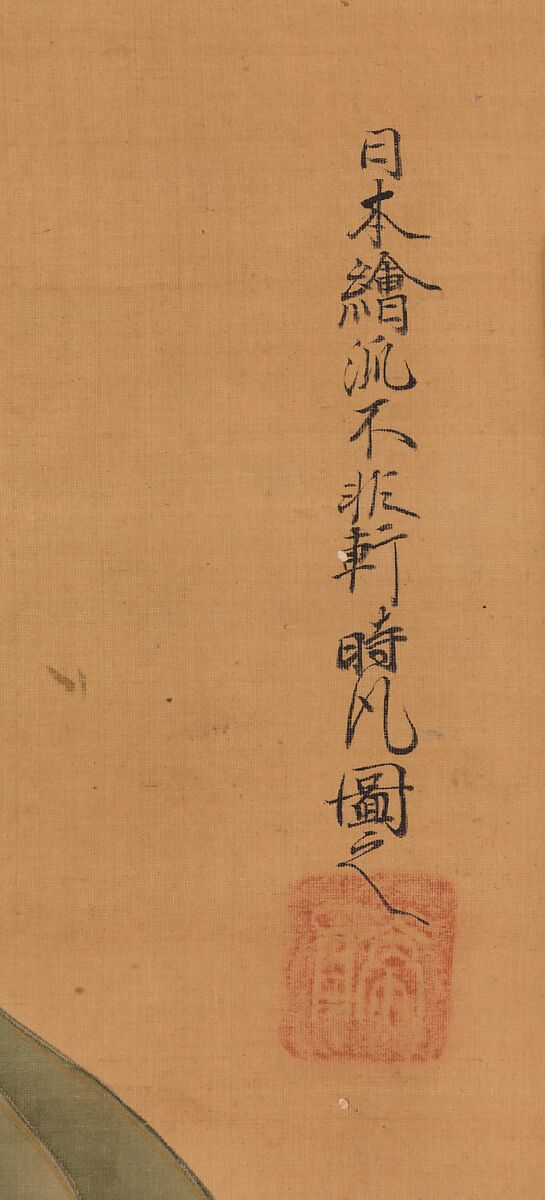 日本繪流不非軒時凡圖之